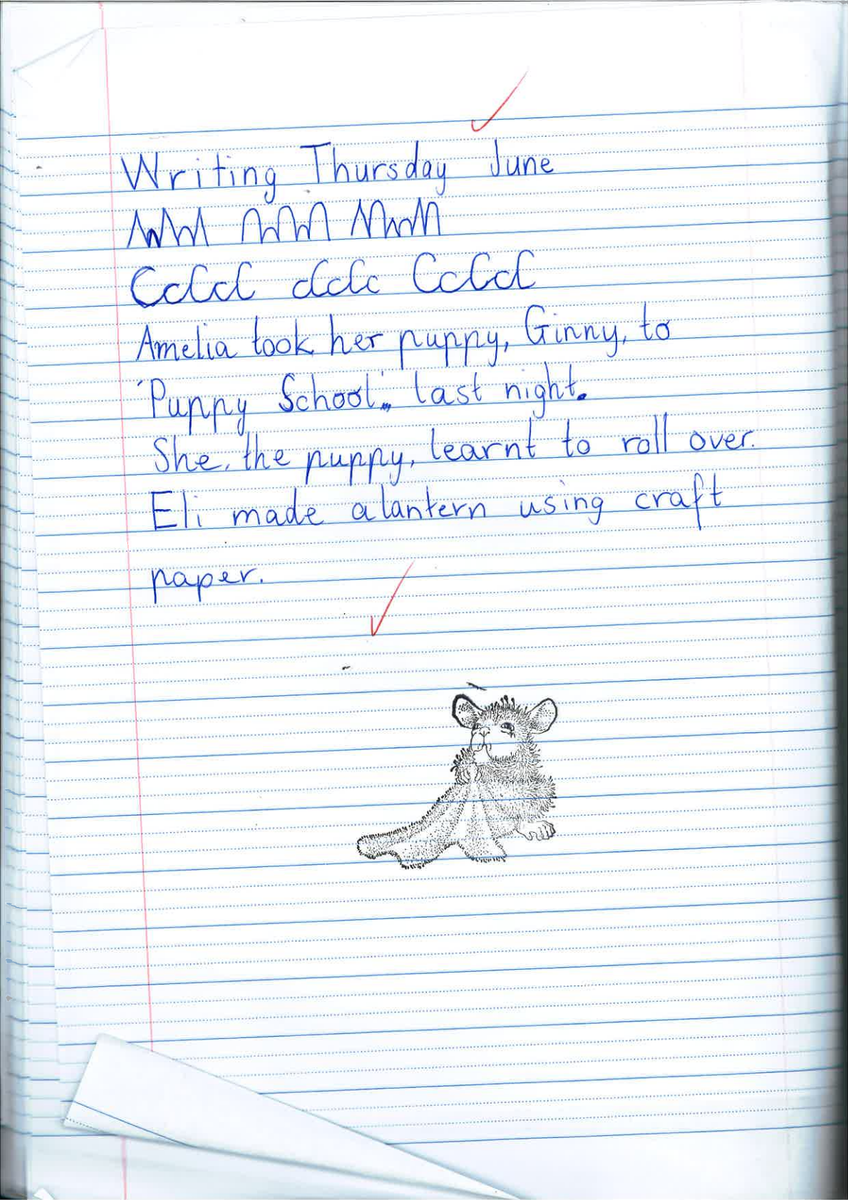 Writing Thursday June
CcCcC cCcCc CcCcC
Amelia took her puppy, Ginny, to
'Puppy School'. last night.
She, the puppy, learnt to roll over.
Eli made a lantern using craft
paper.